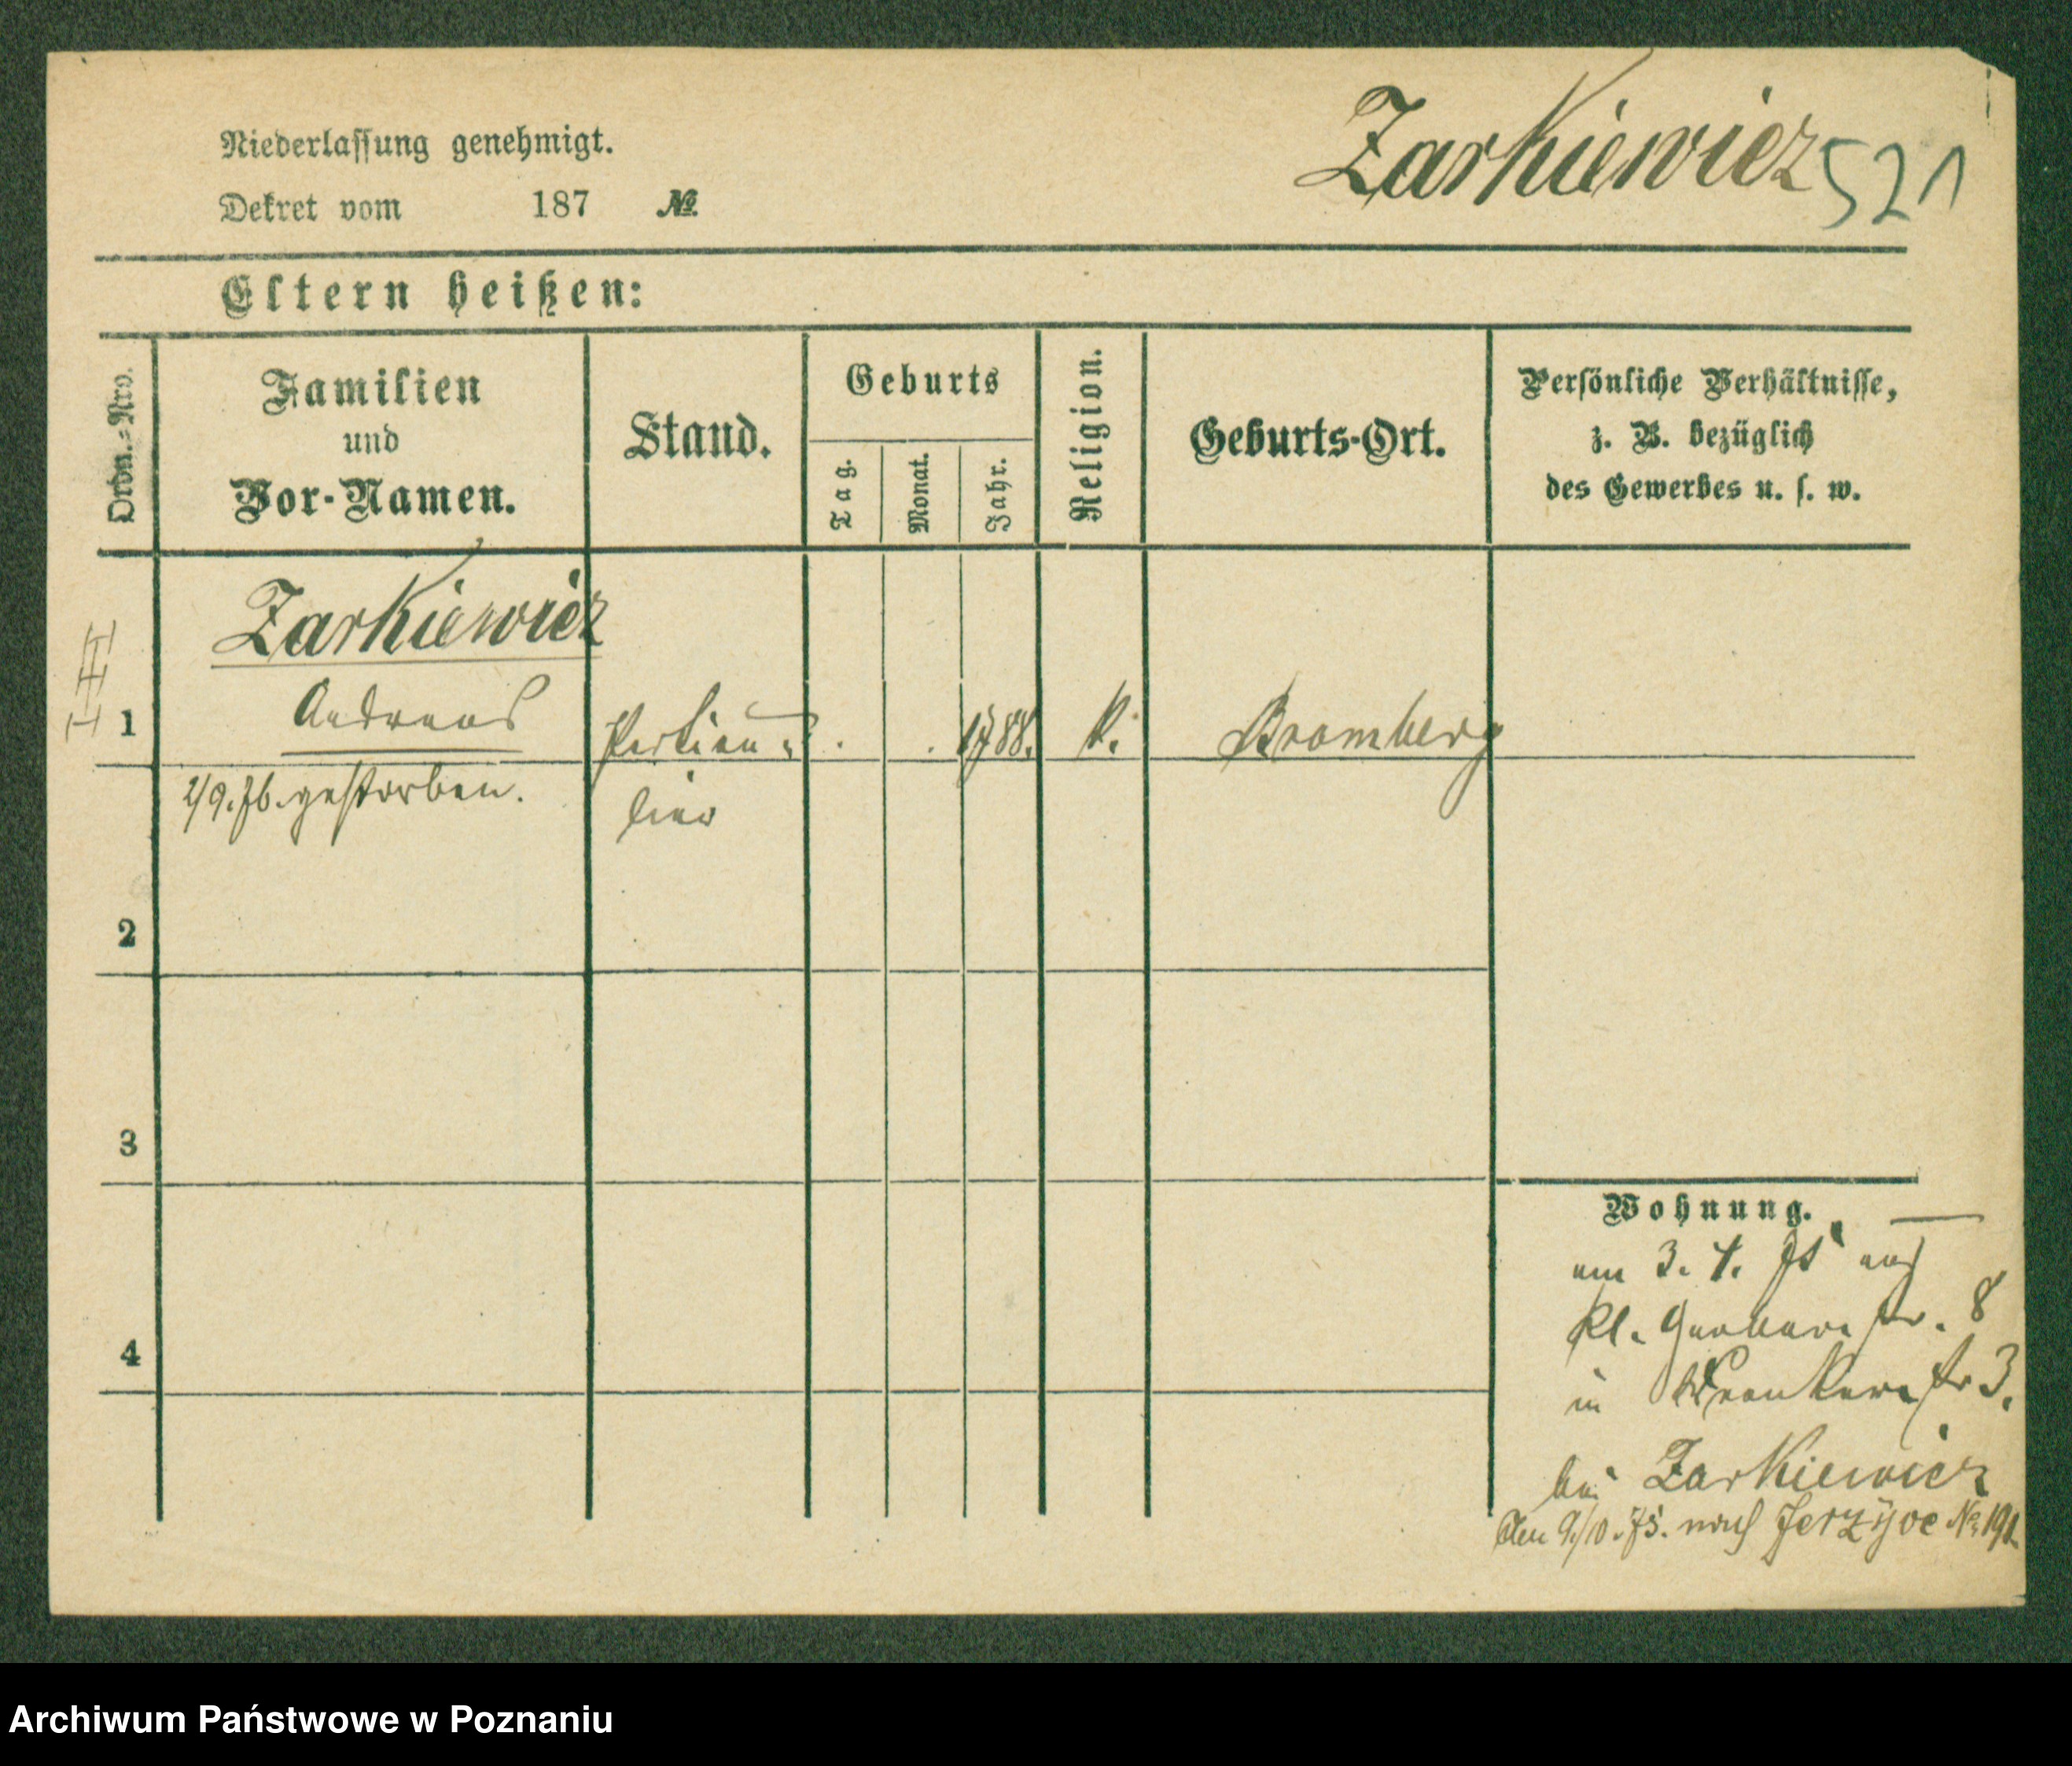 Niederlassung genehmigt.
Dekret vom 187 №
Zarkiewicz 521
Eltern heißen:
Ordn.-Nro.
Familien
und
Vor-Namen.
Stand.
Geburts
Tag.
Monat.
Jahr.
Religion.
Geburts-Ort.
Persönliche Verhältnisse,
z. B. bezüglich
des Gewerbes u. s. w.
Zarkiewicz
1 Andreas Particu- . . 1788. k. Bromberg
2/9.76. gestorben. lier
2
3
4
Wohnung.
am 3. 4. auf
kl. Gerberstr. 8
in Wronkerstr 3.
bei Zarkiewicz
Den 9/10.75. nach Jerzyce No 191